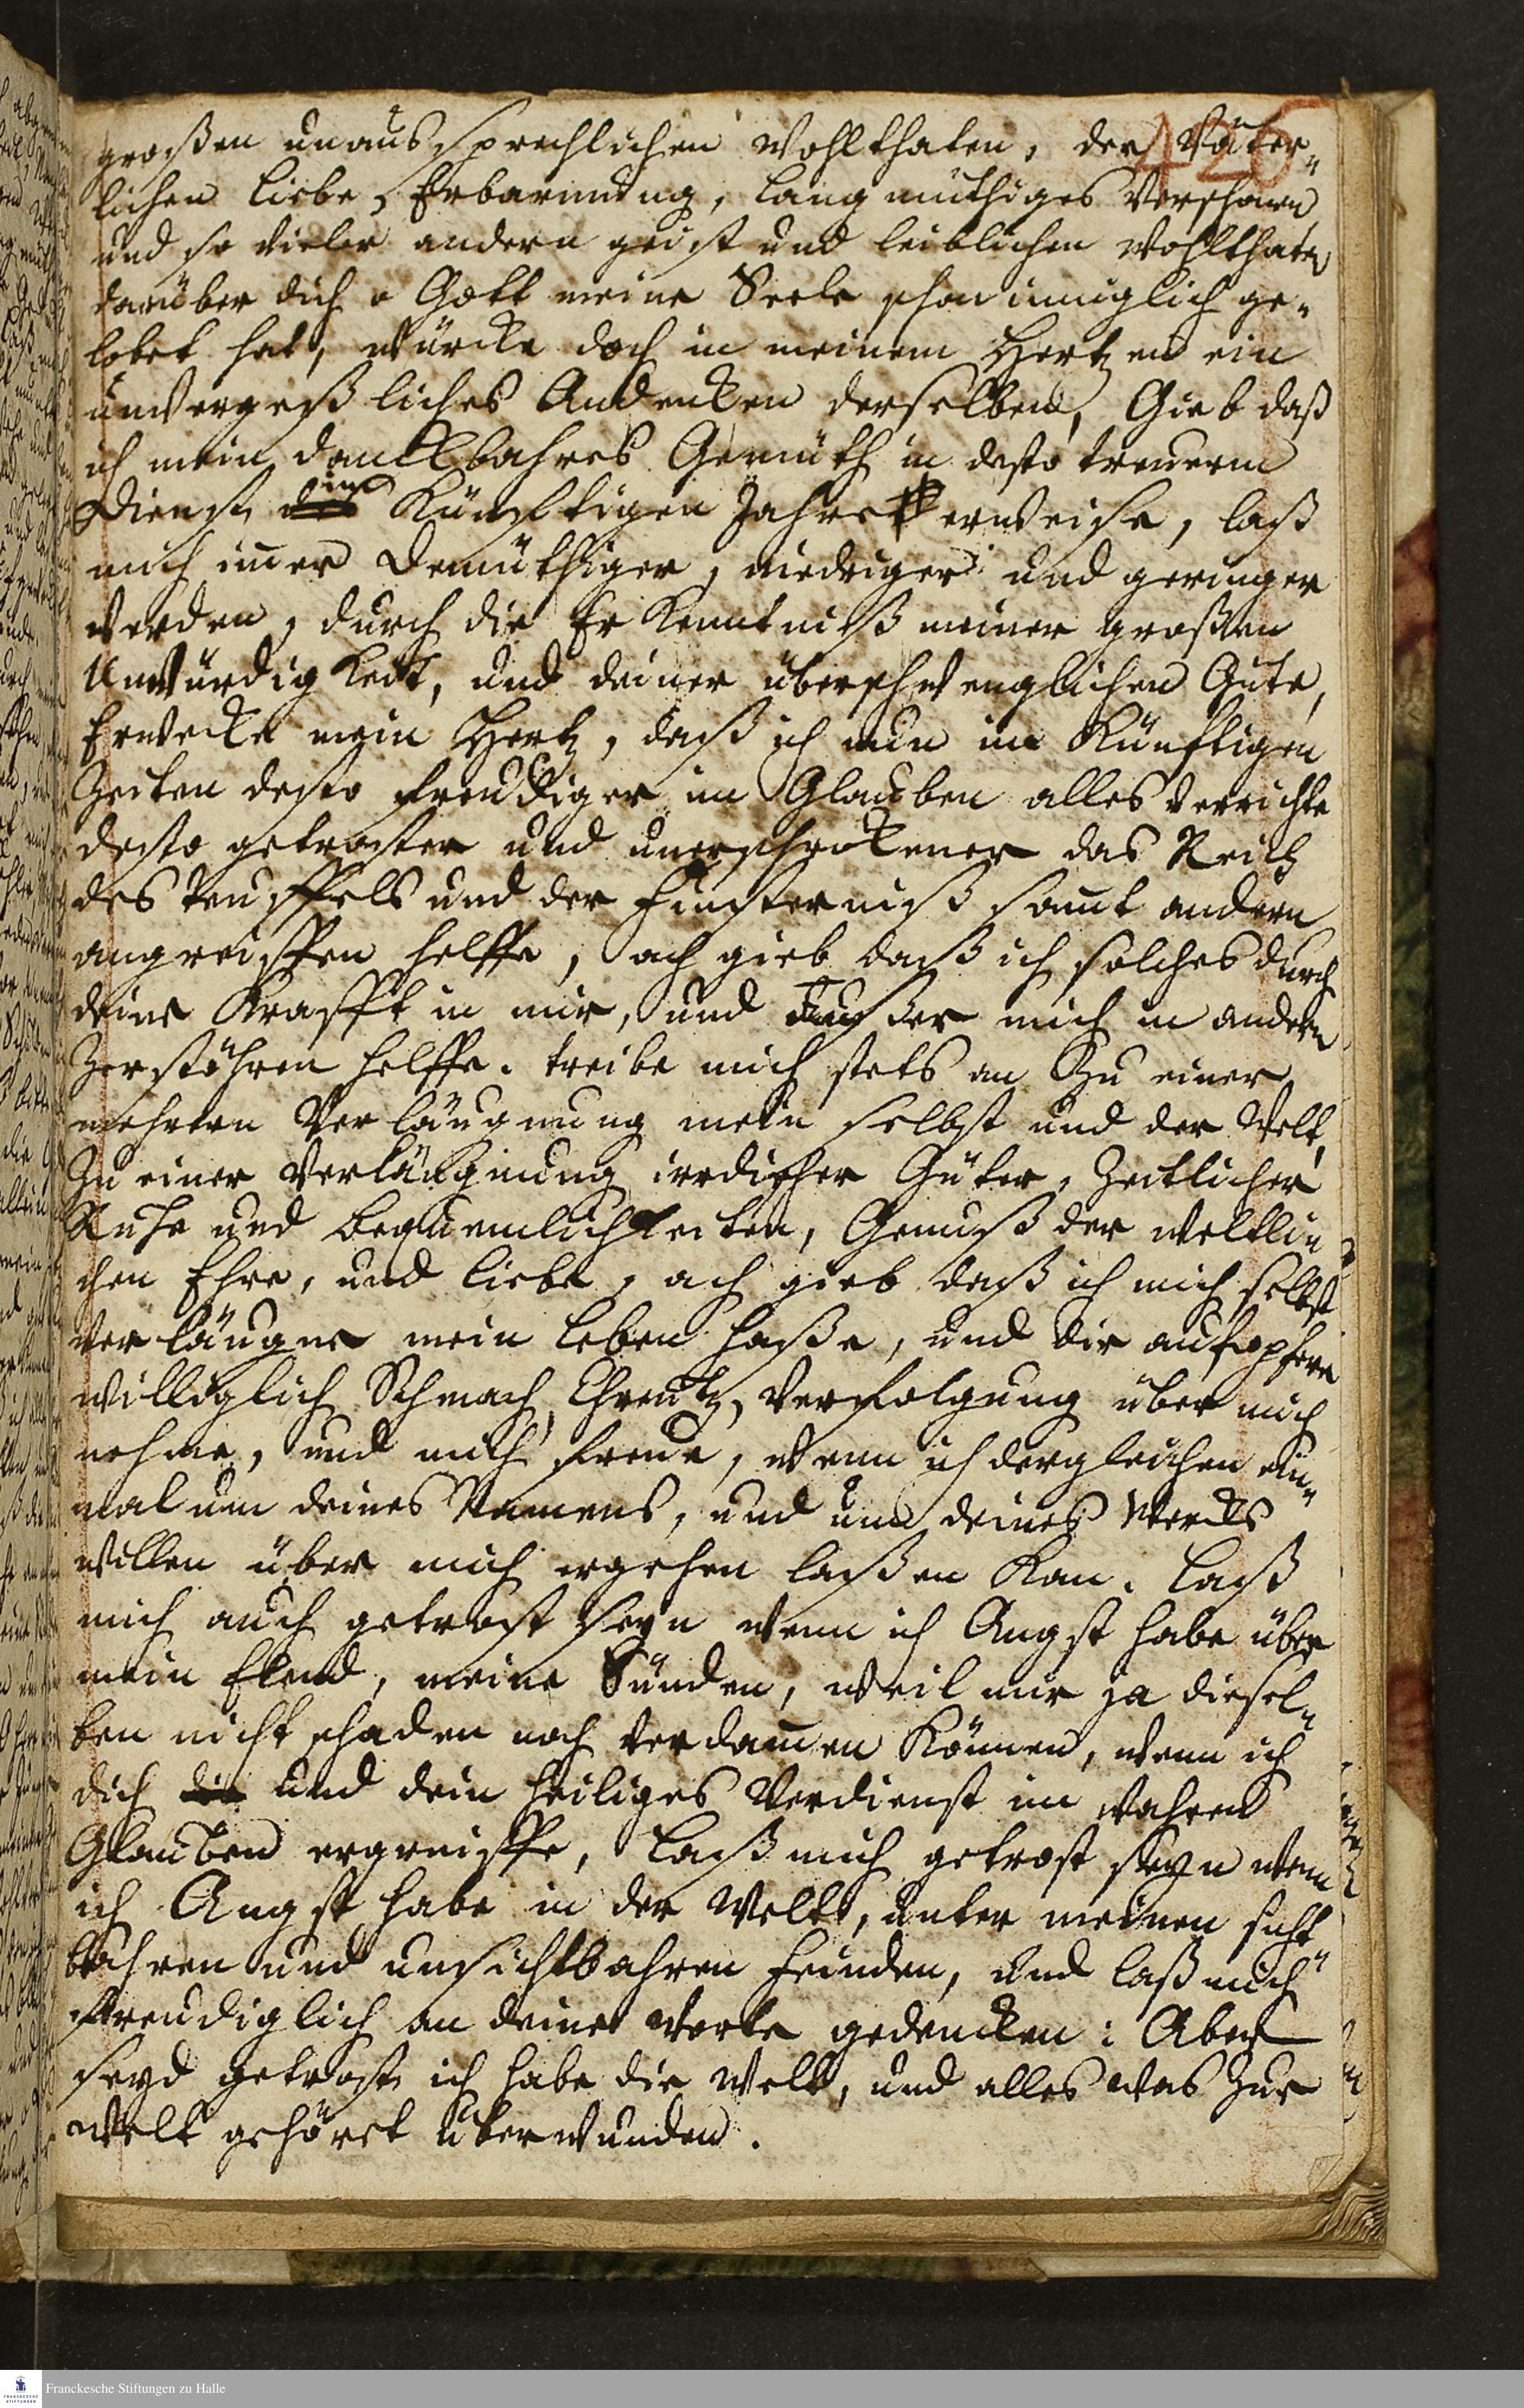 126
großen unaussprechlichen Wohlthaten, der Väter„
lichen Liebe, Erbarmung, langmüthiges Verschonen
und so vieler andern geist und leiblichen Wohlthaten
darüber dich o Gott meine Seele schon inniglich ge„
lobet hat, würcke doch in meinem Hertzen ein
unvergeßliches Andencken derselben, Gieb daß
ich mein danckbahres Gemüth in desto treuerm
Dienst des im Künfftigen Jahre erweise, laß
mich im̄er demüthiger, niedriger und geringer
werden, durch die Erkenntniß meiner großen
Unwürdigkeit, und deiner überschwenglichen Güte,
Erwecke mein Hertz, daß ich nun in Künfftigen
Zeiten desto freudiger im Glauben alles verrichte
desto getroster und unerschrokener das Reich
des Teuffels und der Finsterniß sam̄t andern
angreiffen helffe, ach gieb daß ich solches durch
deine Krafft in mir, und außer mich in andern
Zerstöhren helffe. treibe mich stets an Zu einer
mehrern Verläugnung mein selbst und der Welt,
Zu einer Verläugnung irrdischer Güter, Zeitlicher
Ruhe und bequemlichkeiten, Genuß der weltli„
chen Ehre, und liebe, ach gieb daß ich mich selbst
verläugne mein leben haße, und dir aufopfere
williglich Schmach, Creutz, Verfolgung über mich
nehme, und mich freue, wenn ich dergleichen ein„
mal um deines Namens, und um deines Wercks
willen über mich ergehen laßen Kan. Laß
mich auch getrost seyn wenn ich Angst habe über
mein Elend, meine Sünden, weil mir ja diesel„
ben nicht schaden noch verdam̄en Können, wenn ich
dich die und dein heiliges Verdienst im wahren
Glauben ergreiffe, Laß mich getrost seyn wenn
ich Angst habe in der Welt, unter meinen sicht„
bahren und unsichtbahren Feinden, und laß mich
freudiglich an deine Worte gedencken: Aber
seyd getrost, ich habe die Welt, und alles was Zur
Welt gehöret überwunden.
Franckesche Stiftungen zu Halle